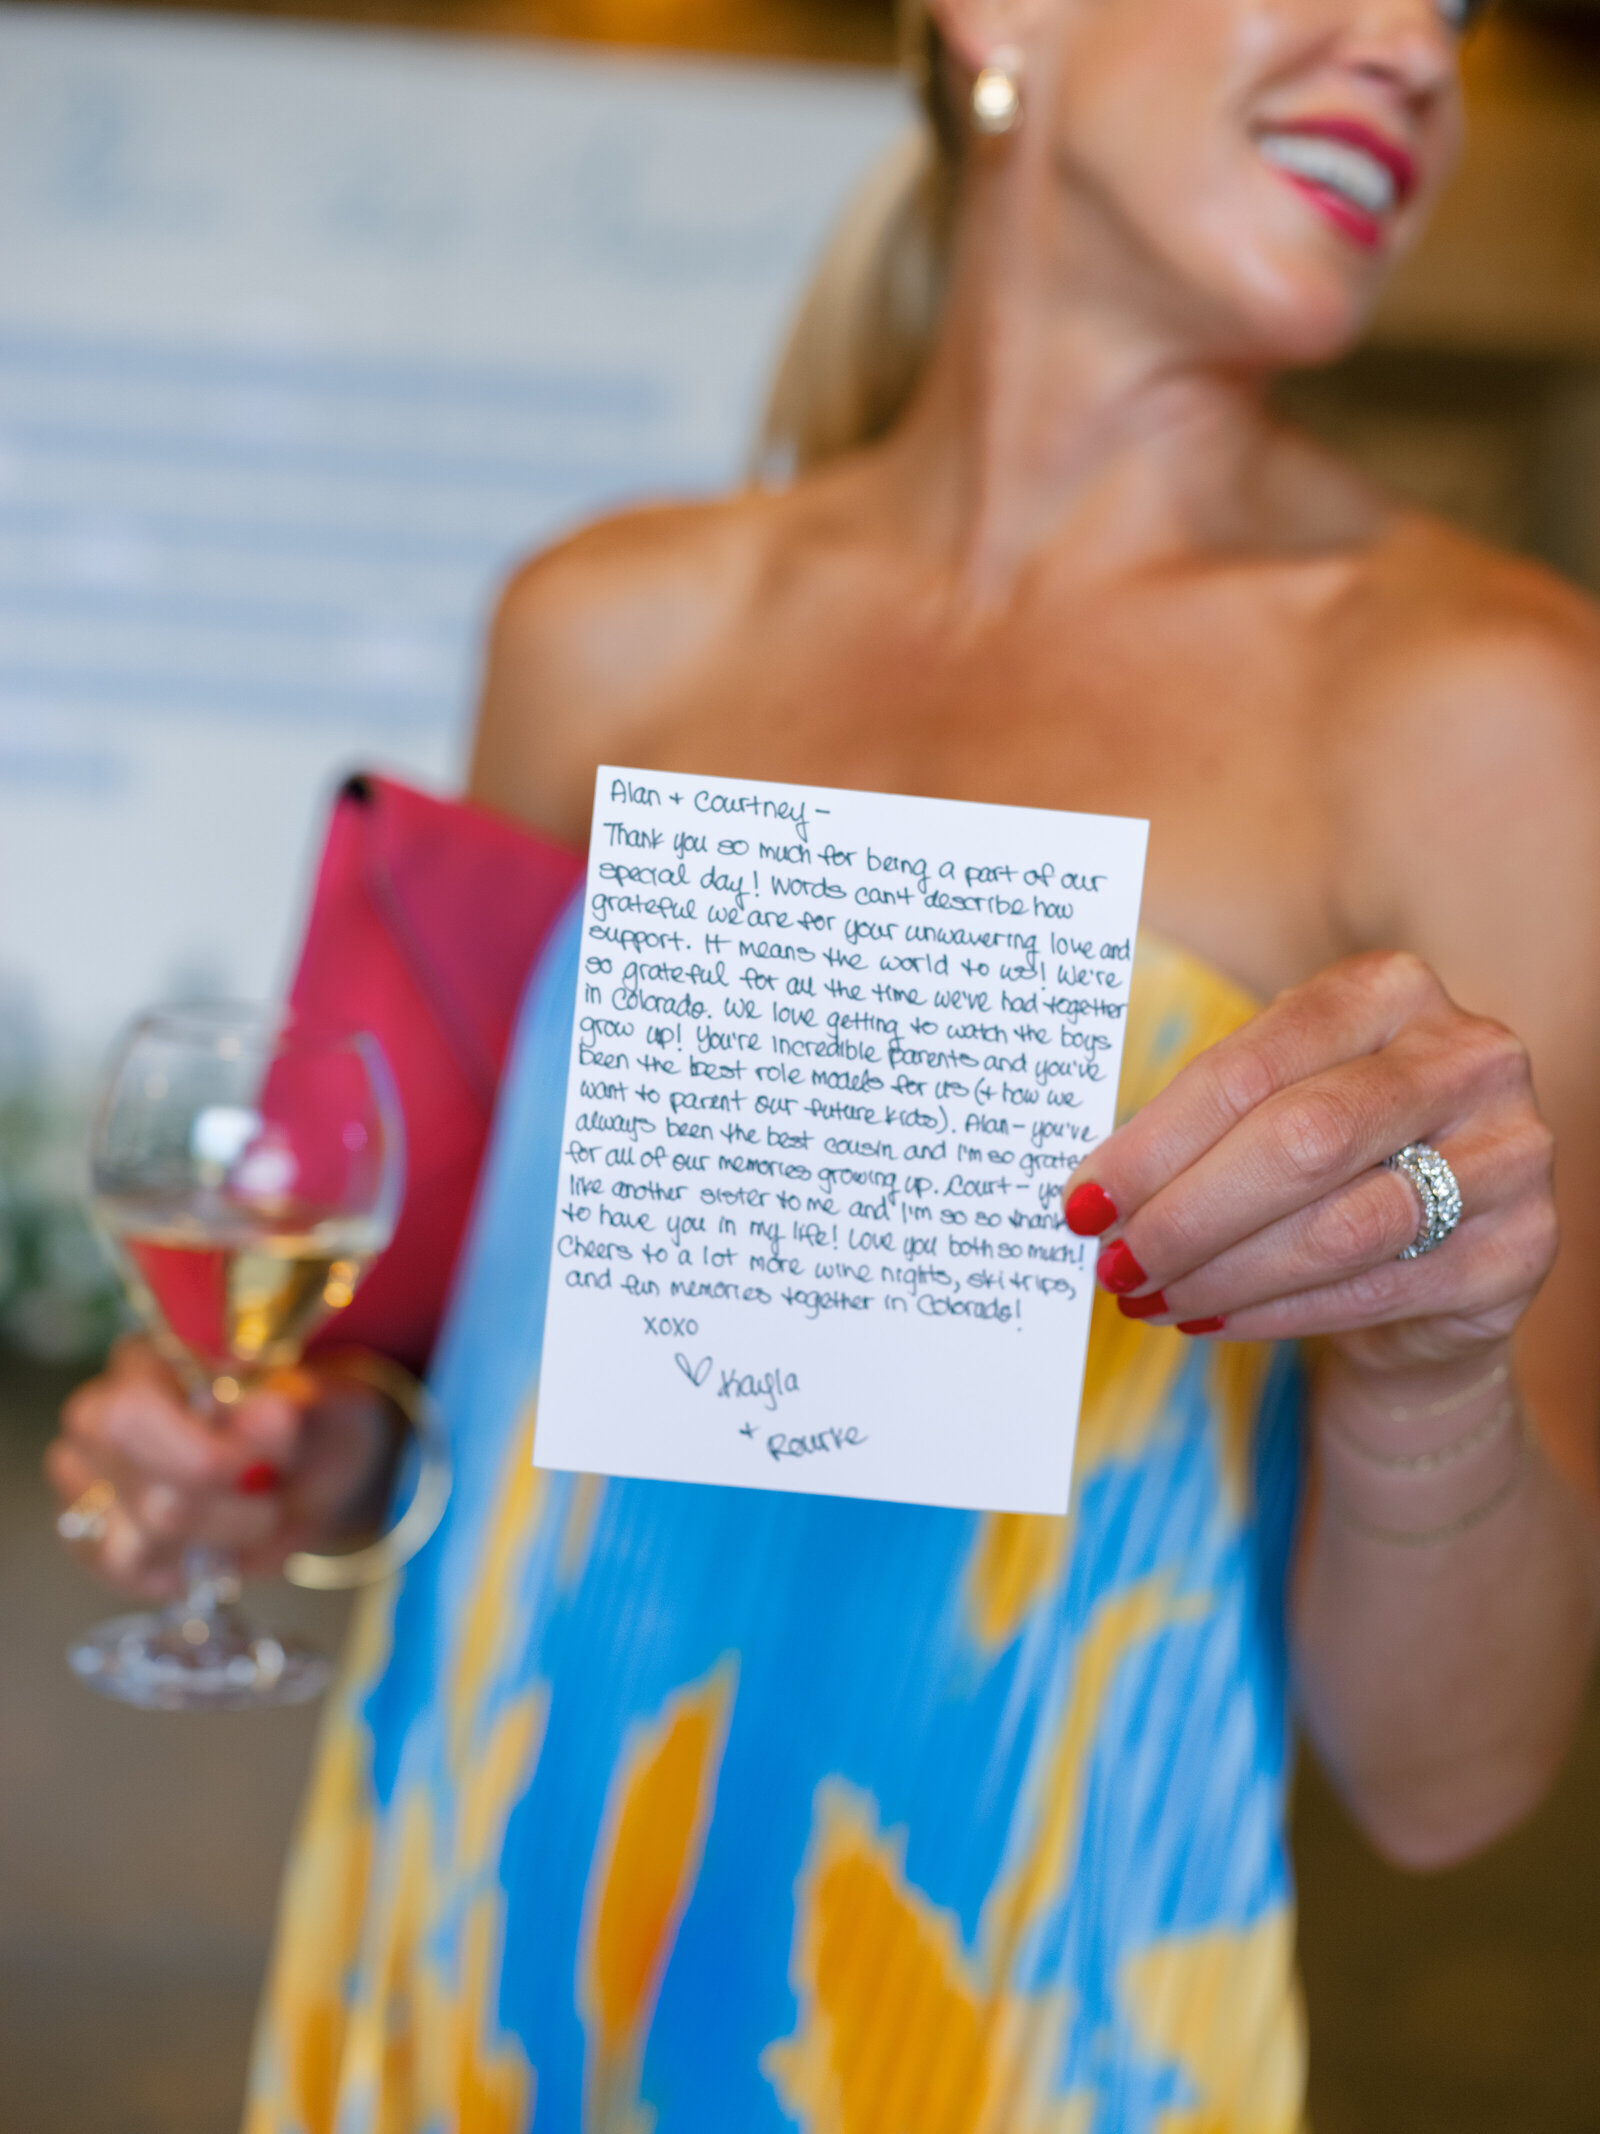 Alan + Courtney –
Thank you so much for being a part of our
special day! Words can't describe how
grateful we are for your unwavering love and
support. It means the world to us! We're
so grateful for all the time we've had together
in Colorado. We love getting to watch the boys
grow up! You're incredible parents and you've
been the best role models for us (+ how we
want to parent our future kids). Alan – you've
always been the best cousin and I'm so
for all of our memories growing up. Court –
like another sister to me and I'm so so
to have you in my life! Love you both so much!
Cheers to a lot more wine nights, ski trips,
and fun memories together in Colorado!
XOXO
♡ Kayla
+ Rourke